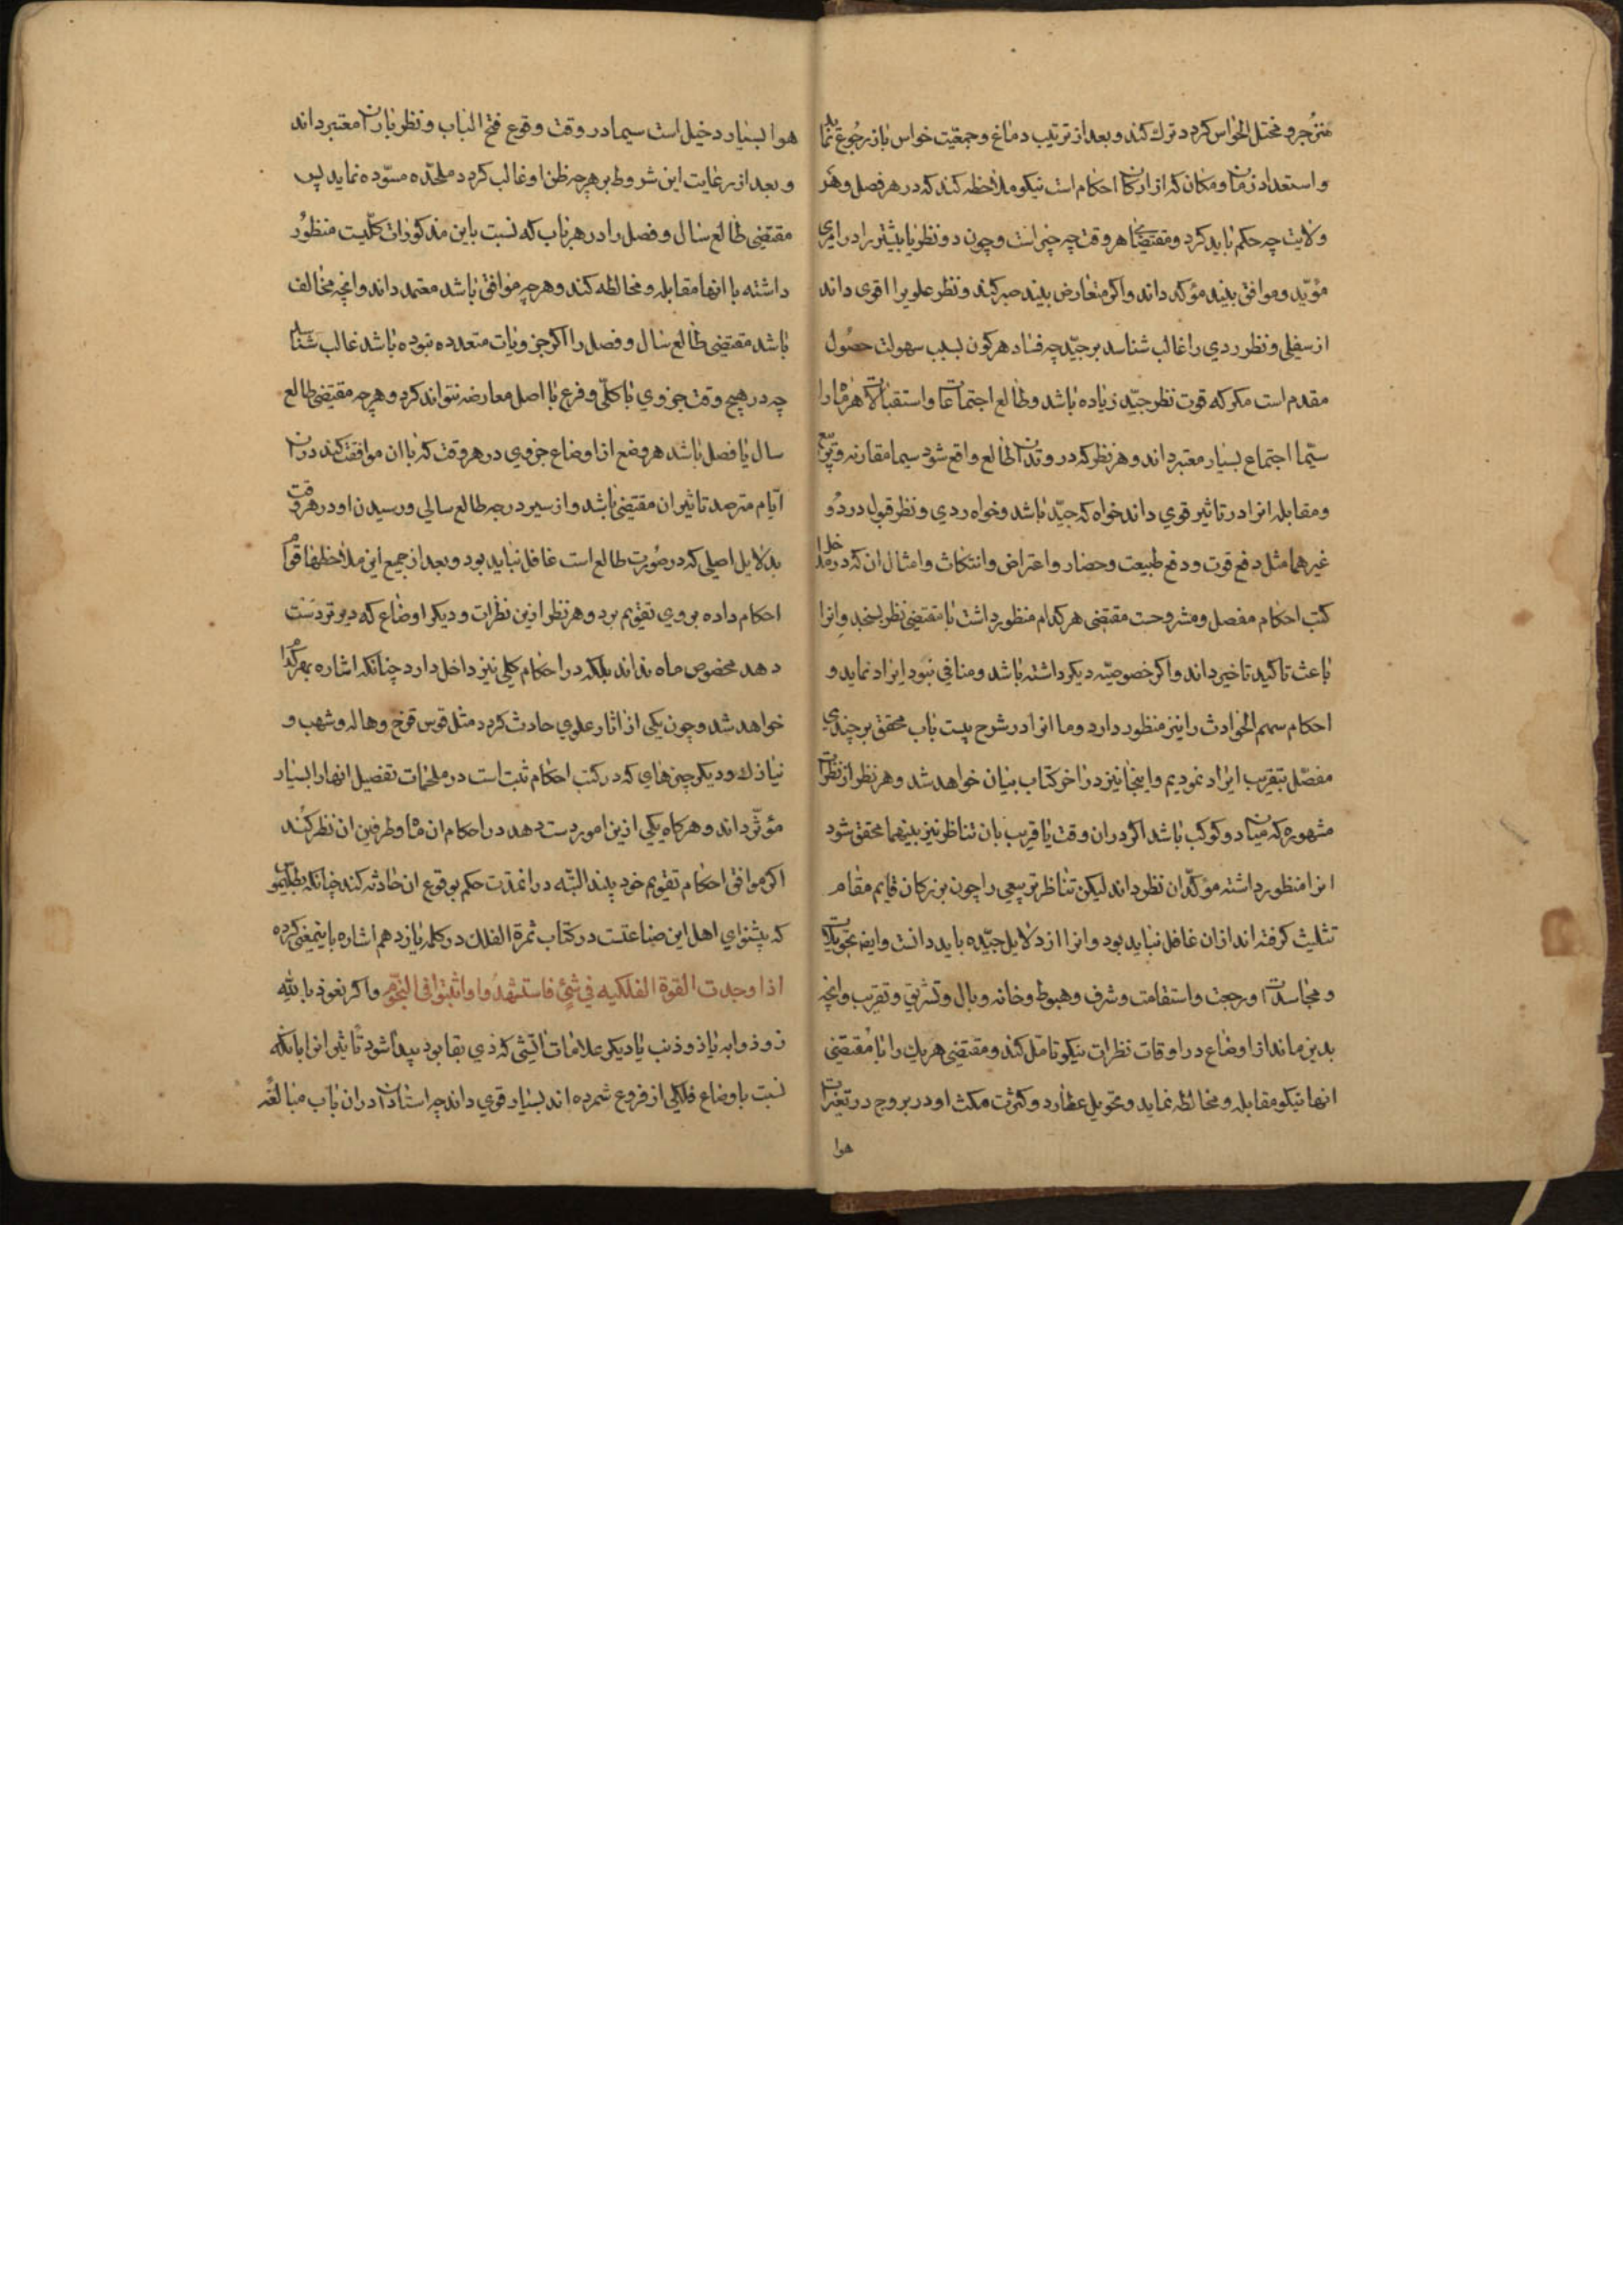 منزجر و مختل الحواس کردد ترك کند و بعد از ترتیب دماغ و جمعیّت حواس باز رجوع نماید
و استعداد زمان و مکان که از ارکان احکام است نیکو ملاحظه کند که در هر فصل و هر
ولایت چه حکم باید کرد و مقتضای هر وقت چه چیز است و چون دو نظر یا بیشتر را در امری
مؤیّد و موافق بیند مؤکد داند و اکر متعارض بیند صبر کند و نظر علویرا اقوی داند
از سفلی و نظر ردي را غالب شناسد بر جیّد چه فساد هر کون بسبب سهولت حصول
مقدم است مکر که قوت نظر جیّد زیاده باشد و طالع اجتماعات و استقبالات هر ماه را
سیّما اجتماع بسیار معتبر داند و هر نظر که در وتدی از اوتاد طالع واقع شود سیما مقارنه و تربیع
و مقابله انرا در تاثیر قوي داند خواه که جیّد باشد و خواه ردي و نظر قبول در دو
غیرهما مثل دفع قوت و دفع طبیعت و حضار و اعتراض و انتکاث و امثال ان که در مداخل
کتب احکام مفصل و مشروحست مقتضی هر کدام منظور داشت با مقتضی نظر بسنجد و انرا
باعث تاکید تاخیر داند و اکر خصوصیّه دیکر داشته باشد و منافی نبود ایراد نماید و
احکام سهم الحوادث را نیز منظور دارد و ما انرا در شرح بیست باب محقق بر چندی
مفصّل بتقریب ایراد نمودیم و اینجا نیز در اخر کتاب بیان خواهد شد و هر نظر از نظرات
مشهوره که میان دو کوکب باشد اکر در ان وقت یا قریب بان تناظر نیز بینهما محقق شود
انرا منظور داشته مؤکّد ان نظر داند لیکن تناظر تربیعی را چون بزرکان قایم مقام
تثلیث کرفته اند از ان غافل نباید بود و انرا از دلایل جیّده باید دانست و ایضا تحویلات
و مجاسدات و رجعت و استقامت و شرف و هبوط و خانه و وبال و تشریق و تغریب و انچه
بدین ماند از اوضاع در اوقات نظرات نیکو تامّل کند و مقتضی هر یك را با مقتضی
انها نیکو مقابله و مخالطه نماید و تحویل عطارد و کثرت مکث او در بروج در تغیرات
هوا
هوا بسیار دخیل است سیما در وقت وقوع فتح الباب و نظر باران معتبر داند
و بعد از رعایت این شروط بر هرچه ظن او غالب کردد ملحدّه مسوّده نماید پس
مقتضی طالع سال و فصل را در هر باب که نسبت باین مذکورات کلّیت منظور
داشته با انها مقابله و مخالطه کند و هرچه موافق باشد معتمد داند و انچه مخالف
باشد مقتضی طالع سال و فصل را اکر جزویات متعدده نبوده باشد غالب شناسد
چه در هیچ وقت جزوي با کلّی و فرع با اصل معارضه نتواند کرد و هرچه مقتضی طالع
سال یا فصل باشد هر وضع از اوضاع جزوي در هر وقت که با ان موافقت کند در ان
ایّام مترصد تاثیر ان مقتضی باشد و از سیر درجه طالع سالی و رسیدن او در هر وقت
بدلایل اصیلی که در صورت طالع است غافل نباید بود و بعد از جمیع این ملاحظها قوام
احکام داده بروي تقویم برد و هر نظر ازین نظرات و دیکر اوضاع که دیرتر دست
دهد مخصوص ماه نداند بلکه در احکام کلي نیز داخل دارد چنانکه اشاره بهر کدام
خواهد شد و چون یکی از اثار علوي حادث کردد مثل قوس قزح و هاله و شهب و
نیازك و دیکر چیزهاي که در کتب احکام ثبت است در ملحمات تفصیل انهارا بسیار
مؤثّر داند و هرکاه یکی ازین امور دست دهد در احکام ان ماه و طرفین ان نظر کند
اکر موافق احکام تقویم خود بیند البتّه در انمدت حکم بوقوع ان حادثه کند چنانکه بطلمیوس
که پیشوای اهل این صناعتست در کتاب ثمرة الفلك در کلمه یازدهم اشاره باینمعنی کرده
اذا وجدت القوة الفلکیه في شيٍ فاستشهدوا واثبتوا في النجوم واکر نعوذ بالله
ذو ذوابه یا ذو ذنب یا دیکر علامات اتشي که ذي بقا بود پیدا شود تاثیر انرا بانکه
نسبت باوضاع فلکی از فروع شمرده اند بسیار قوي داند چه استادان در ان باب مبالغه